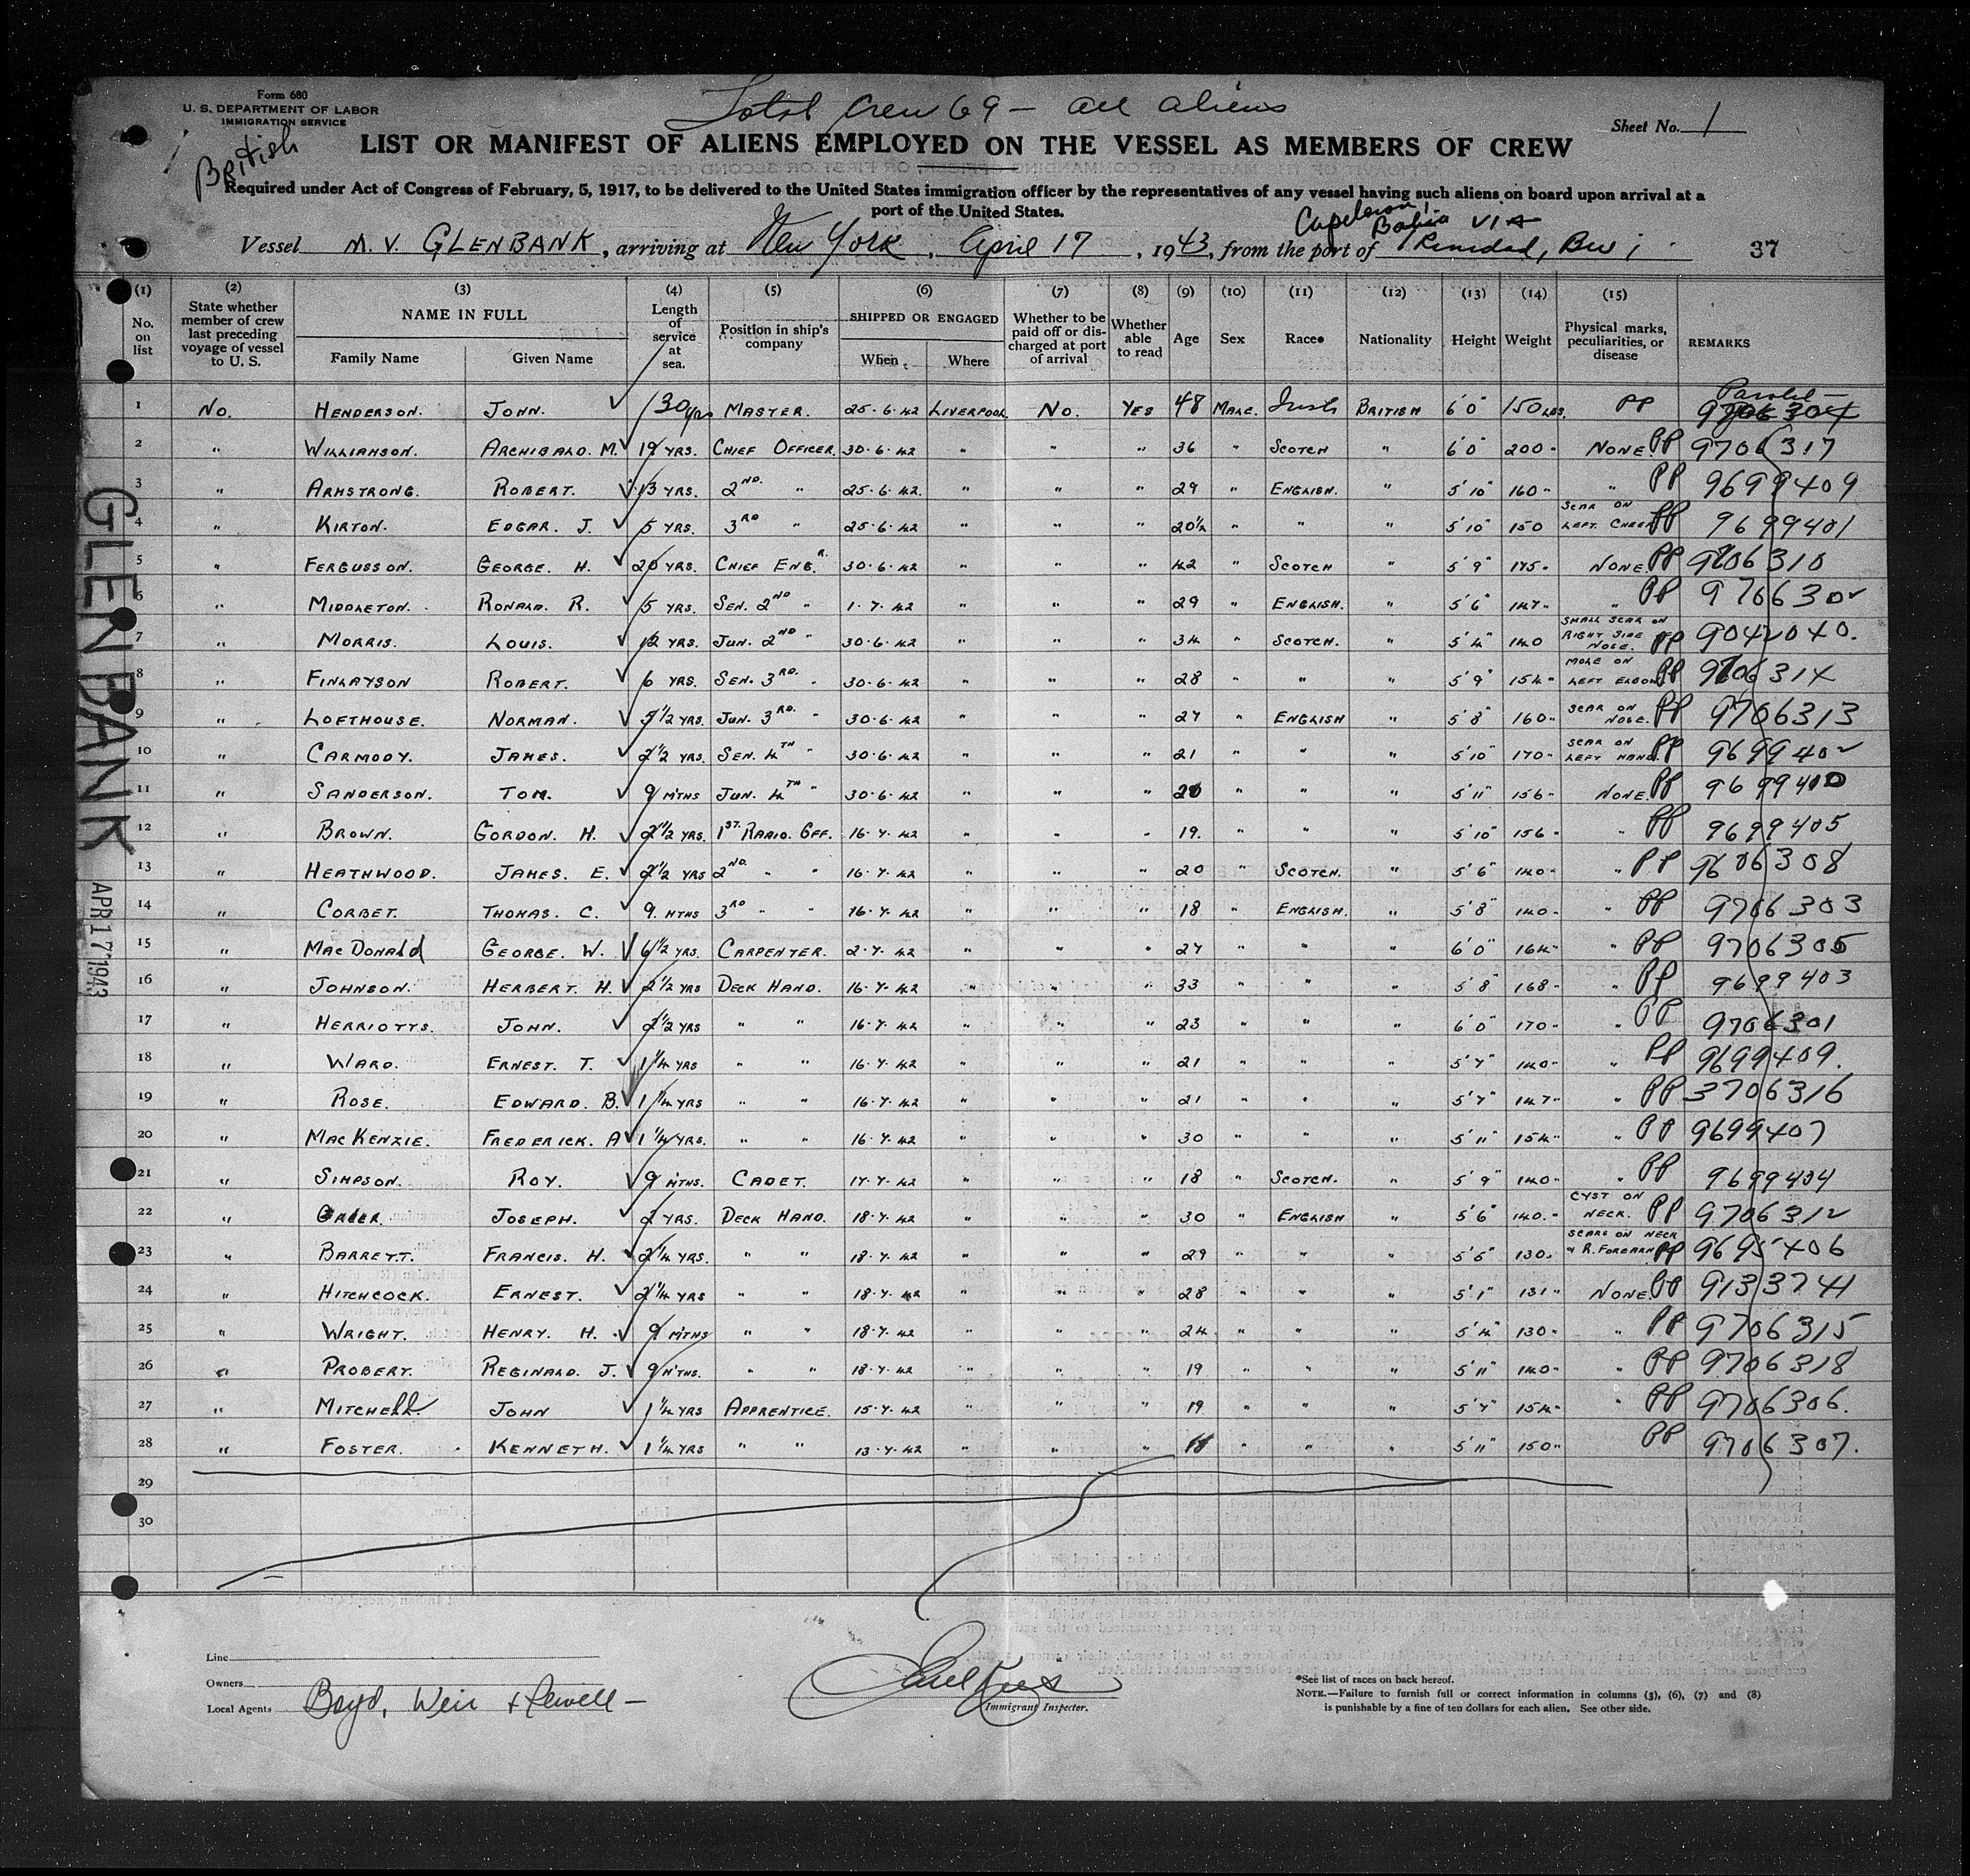 Form 680
U. S. DEPARTMENT OF LABOR
IMMIGRATION SERVICE
British
Total Crew 69 — all aliens
Sheet No. 1
LIST OR MANIFEST OF ALIENS EMPLOYED ON THE VESSEL AS MEMBERS OF CREW
Required under Act of Congress of February, 5, 1917, to be delivered to the United States immigration officer by the representatives of any vessel having such aliens on board upon arrival at a
port of the United States.
Bahia VIA
Vessel M. V. GLENBANK, arriving at New York, April 17, 1943, from the port of Trinidad, BWI 37
(1) (2) (3) (4) (5) (6) (7) (8) (9) (10) (11) (12) (13) (14) (15)
No. on list State whether member of crew last preceding voyage of vessel to U. S. NAME IN FULL Family Name Given Name Length of service at sea. Position in ship's company SHIPPED OR ENGAGED When Where Whether to be paid off or discharged at port of arrival Whether able to read Age Sex Race* Nationality Height Weight Physical marks, peculiarities, or disease REMARKS
1 No. HENDERSON. JOHN. 30 yrs MASTER. 25.6.42 LIVERPOOL. No. YES 48 MALE. Irish BRITISH 6'0" 150 LBS. PP Paroled — 9706304
2 " WILLIAMSON. ARCHIBALD. M. 19 YRS. CHIEF OFFICER. 30.6.42 " " " 36 " SCOTCH " 6'0" 200 " NONE. PP 9706317
3 " ARMSTRONG. ROBERT. 13 YRS. 2ND. " 25.6.42. " " " 29 " ENGLISH. " 5'10" 160 " " PP 9699409
4 " KIRTON. EDGAR. J. 5 YRS. 3RD " 25.6.42 " " " 20½ " " " 5'10" 150 SCAR ON LEFT. CHEEK PP 9699401
5 " FERGUSSON. GEORGE. H. 20 YRS. CHIEF ENGR. 30.6.42 " " " 42 " SCOTCH " 5'9" 175 " NONE. PP 9706310
6 " MIDDLETON. RONALD. R. 5 YRS. SEN. 2ND " 1.7.42 " " " 29 " ENGLISH. " 5'6" 147 " " PP 9706302
7 " MORRIS. LOUIS. 12 YRS. JUN. 2ND " 30.6.42 " " " 34 " SCOTCH. " 5'4" 140 SMALL SCAR ON RIGHT SIDE OF NOSE. PP 9042040.
8 " FINLAYSON ROBERT. 6 YRS. SEN. 3RD. " 30.6.42 " " " 28 " " " 5'9" 154 " MOLE ON LEFT ELBOW PP 9706314
9 " LOFTHOUSE. NORMAN. 5½ YRS. JUN. 3RD. " 30.6.42 " " " 27 " ENGLISH " 5'8" 160 " SCAR ON NOSE. PP 9706313
10 " CARMODY. JAMES. 2½ YRS. SEN. 4TH " 30.6.42 " " " 21 " " " 5'10" 170 " SCAR ON LEFT HAND. PP 9699402
11 " SANDERSON. TOM. 9 MTHS JUN. 4TH " 30.6.42 " " " 20 " " " 5'11" 156 " NONE. PP 9699400
12 " BROWN. GORDON. H. 2½ YRS. 1ST. RADIO. OFF. 16.7.42 " " " 19. " " " 5'10" 156 " " PP 9699405
13 " HEATHWOOD. JAMES. E. 2½ YRS 2ND. " " 16.7.42 " " " 20 " SCOTCH. " 5'6" 140 " " PP 9606308
14 " CORBET. THOMAS. C. 9. MTHS 3RD " " 16.7.42 " " " 18 " ENGLISH. " 5'8" 140 " " PP 9706303
15 " MacDonald GEORGE. W. 6½ YRS. CARPENTER. 2.7.42 " " " 27 " " " 6'0" 164 " " PP 9706305
16 " JOHNSON. HERBERT. H. 2½ YRS DECK HAND. 16.7.42 " " " 33 " " " 5'8" 168 " " PP 9699403
17 " HERRIOTTS. JOHN. 2½ YRS " " 16.7.42 " " " 23 " " " 6'0" 170 " " PP 9706301
18 " WARD. ERNEST. T. 1¼ YRS " " 16.7.42 " " " 21 " " " 5'7" 140 " " PP 9699409.
19 " ROSE. EDWARD. B. 1¼ YRS " " 16.7.42 " " " 21 " " " 5'7" 147 " " PP 3706316
20 " MACKENZIE. FREDERICK. A 1¼ YRS. " " 16.7.42 " " " 30 " " " 5'11" 154 " " PP 9699407
21 " SIMPSON. ROY. 9 MTHS. CADET. 17.7.42 " " " 18 " SCOTCH. " 5'9" 140 " " PP 9699404
22 " JOSEPH. 2 YRS. DECK HAND. 18.7.42 " " " 30 " ENGLISH " 5'6" 140. " CYST ON NECK. PP 9706312
23 " BARRETT. FRANCIS. H. 2¼ YRS. " " 18.7.42 " " " 29 " " " 5'6" 130 " SCARS ON NECK & R. FOREARM PP 9695406
24 " HITCHCOCK. ERNEST. 2¼ YRS " " 18.7.42 " " " 28 " " " 5'1" 131 " NONE. PP 9133741
25 " WRIGHT. HENRY. H. 9 MTHS " " 18.7.42 " " " 24 " " " 5'4" 130 " " PP 9706315
26 " PROBERT. REGINALD. J. 9 MTHS. " " 18.7.42 " " " 19 " " " 5'11" 140 " " PP 9706318
27 " MITCHELL JOHN 1¼ YRS APPRENTICE. 15.7.42 " " " 19. " " " 5'7" 154 " " PP 9706306.
28 " FOSTER. KENNETH. 1¼ YRS " " 13.7.42 " " " 18 " " " 5'11" 150 " PP 9706307.
29
30
GLENBANK
APR 17 1943
Line
Owners
Local Agents Boyd, Weir & Sewell —
Immigrant Inspector.
*See list of races on back hereof.
NOTE.—Failure to furnish full or correct information in columns (3), (6), (7) and (8)
is punishable by a fine of ten dollars for each alien. See other side.